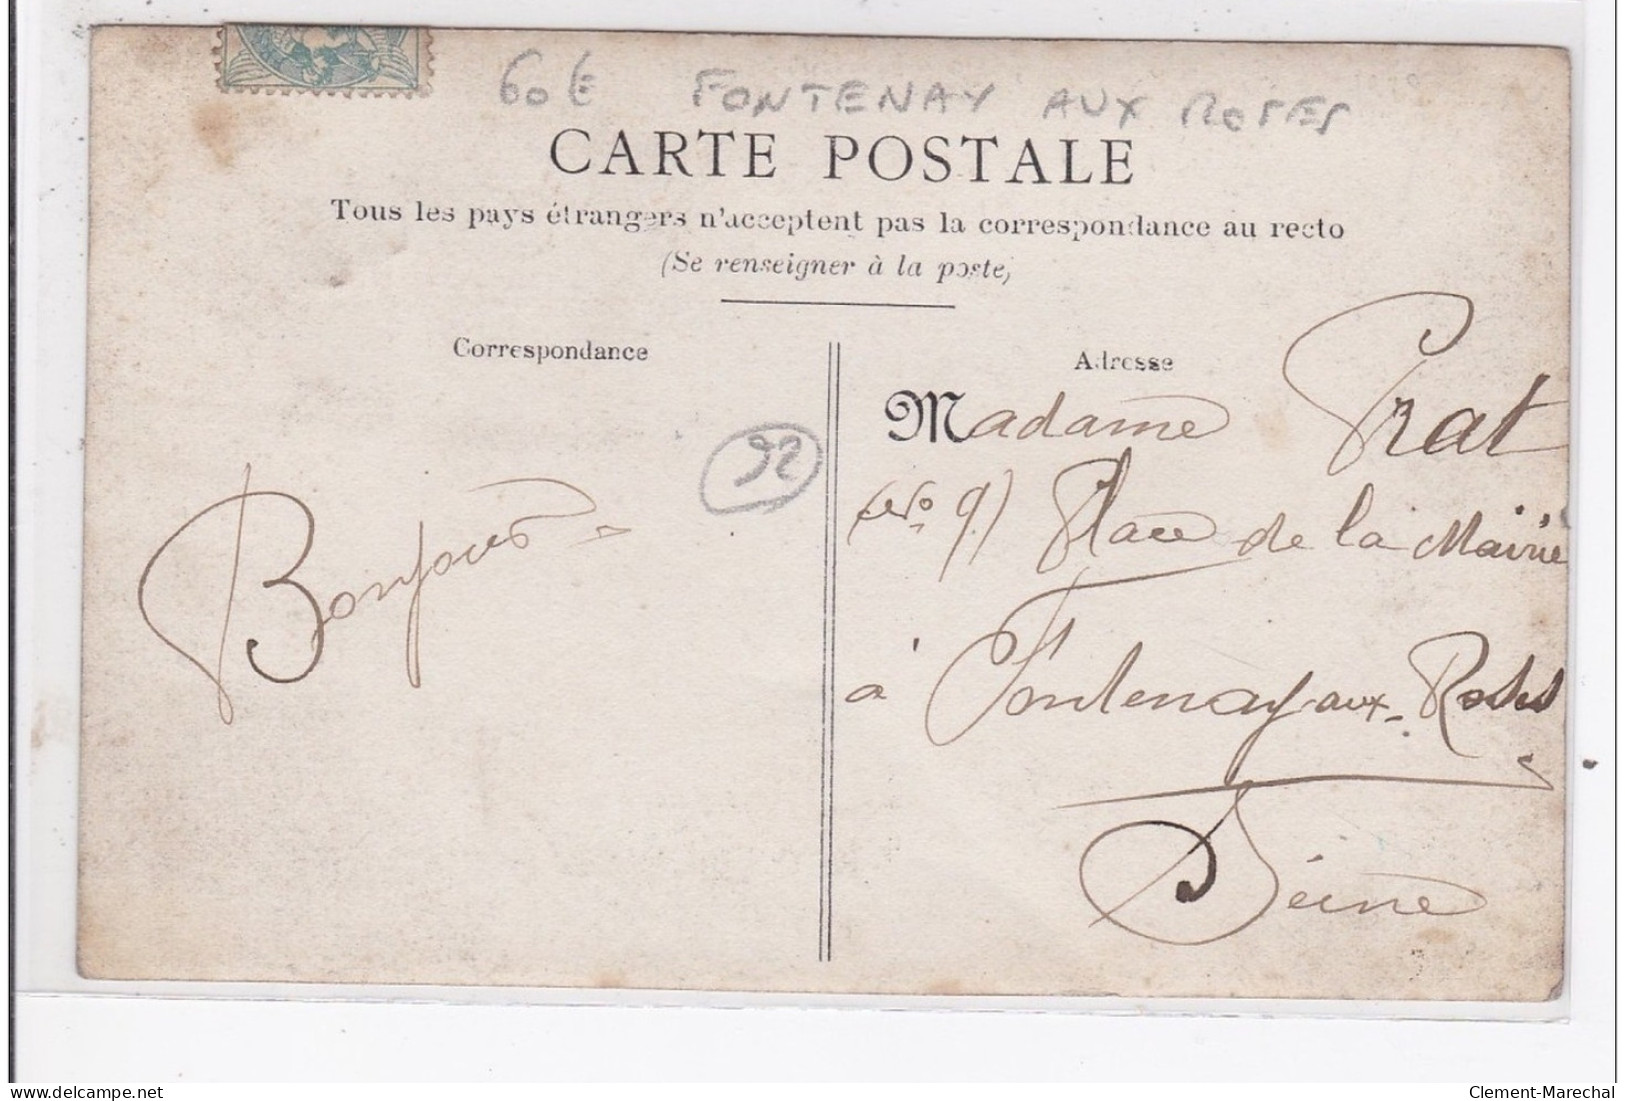 60€ FONTENAY AUX ROSES
CARTE POSTALE
Tous les pays étrangers n'acceptent pas la correspondance au recto
(Se renseigner à la poste)
Correspondance
92
Bonjour
Adresse
Madame Prat
(No 9) Place de la Mairie
à Fontenay-aux-Roses
Seine
delcampe.net
Clement-Marechal